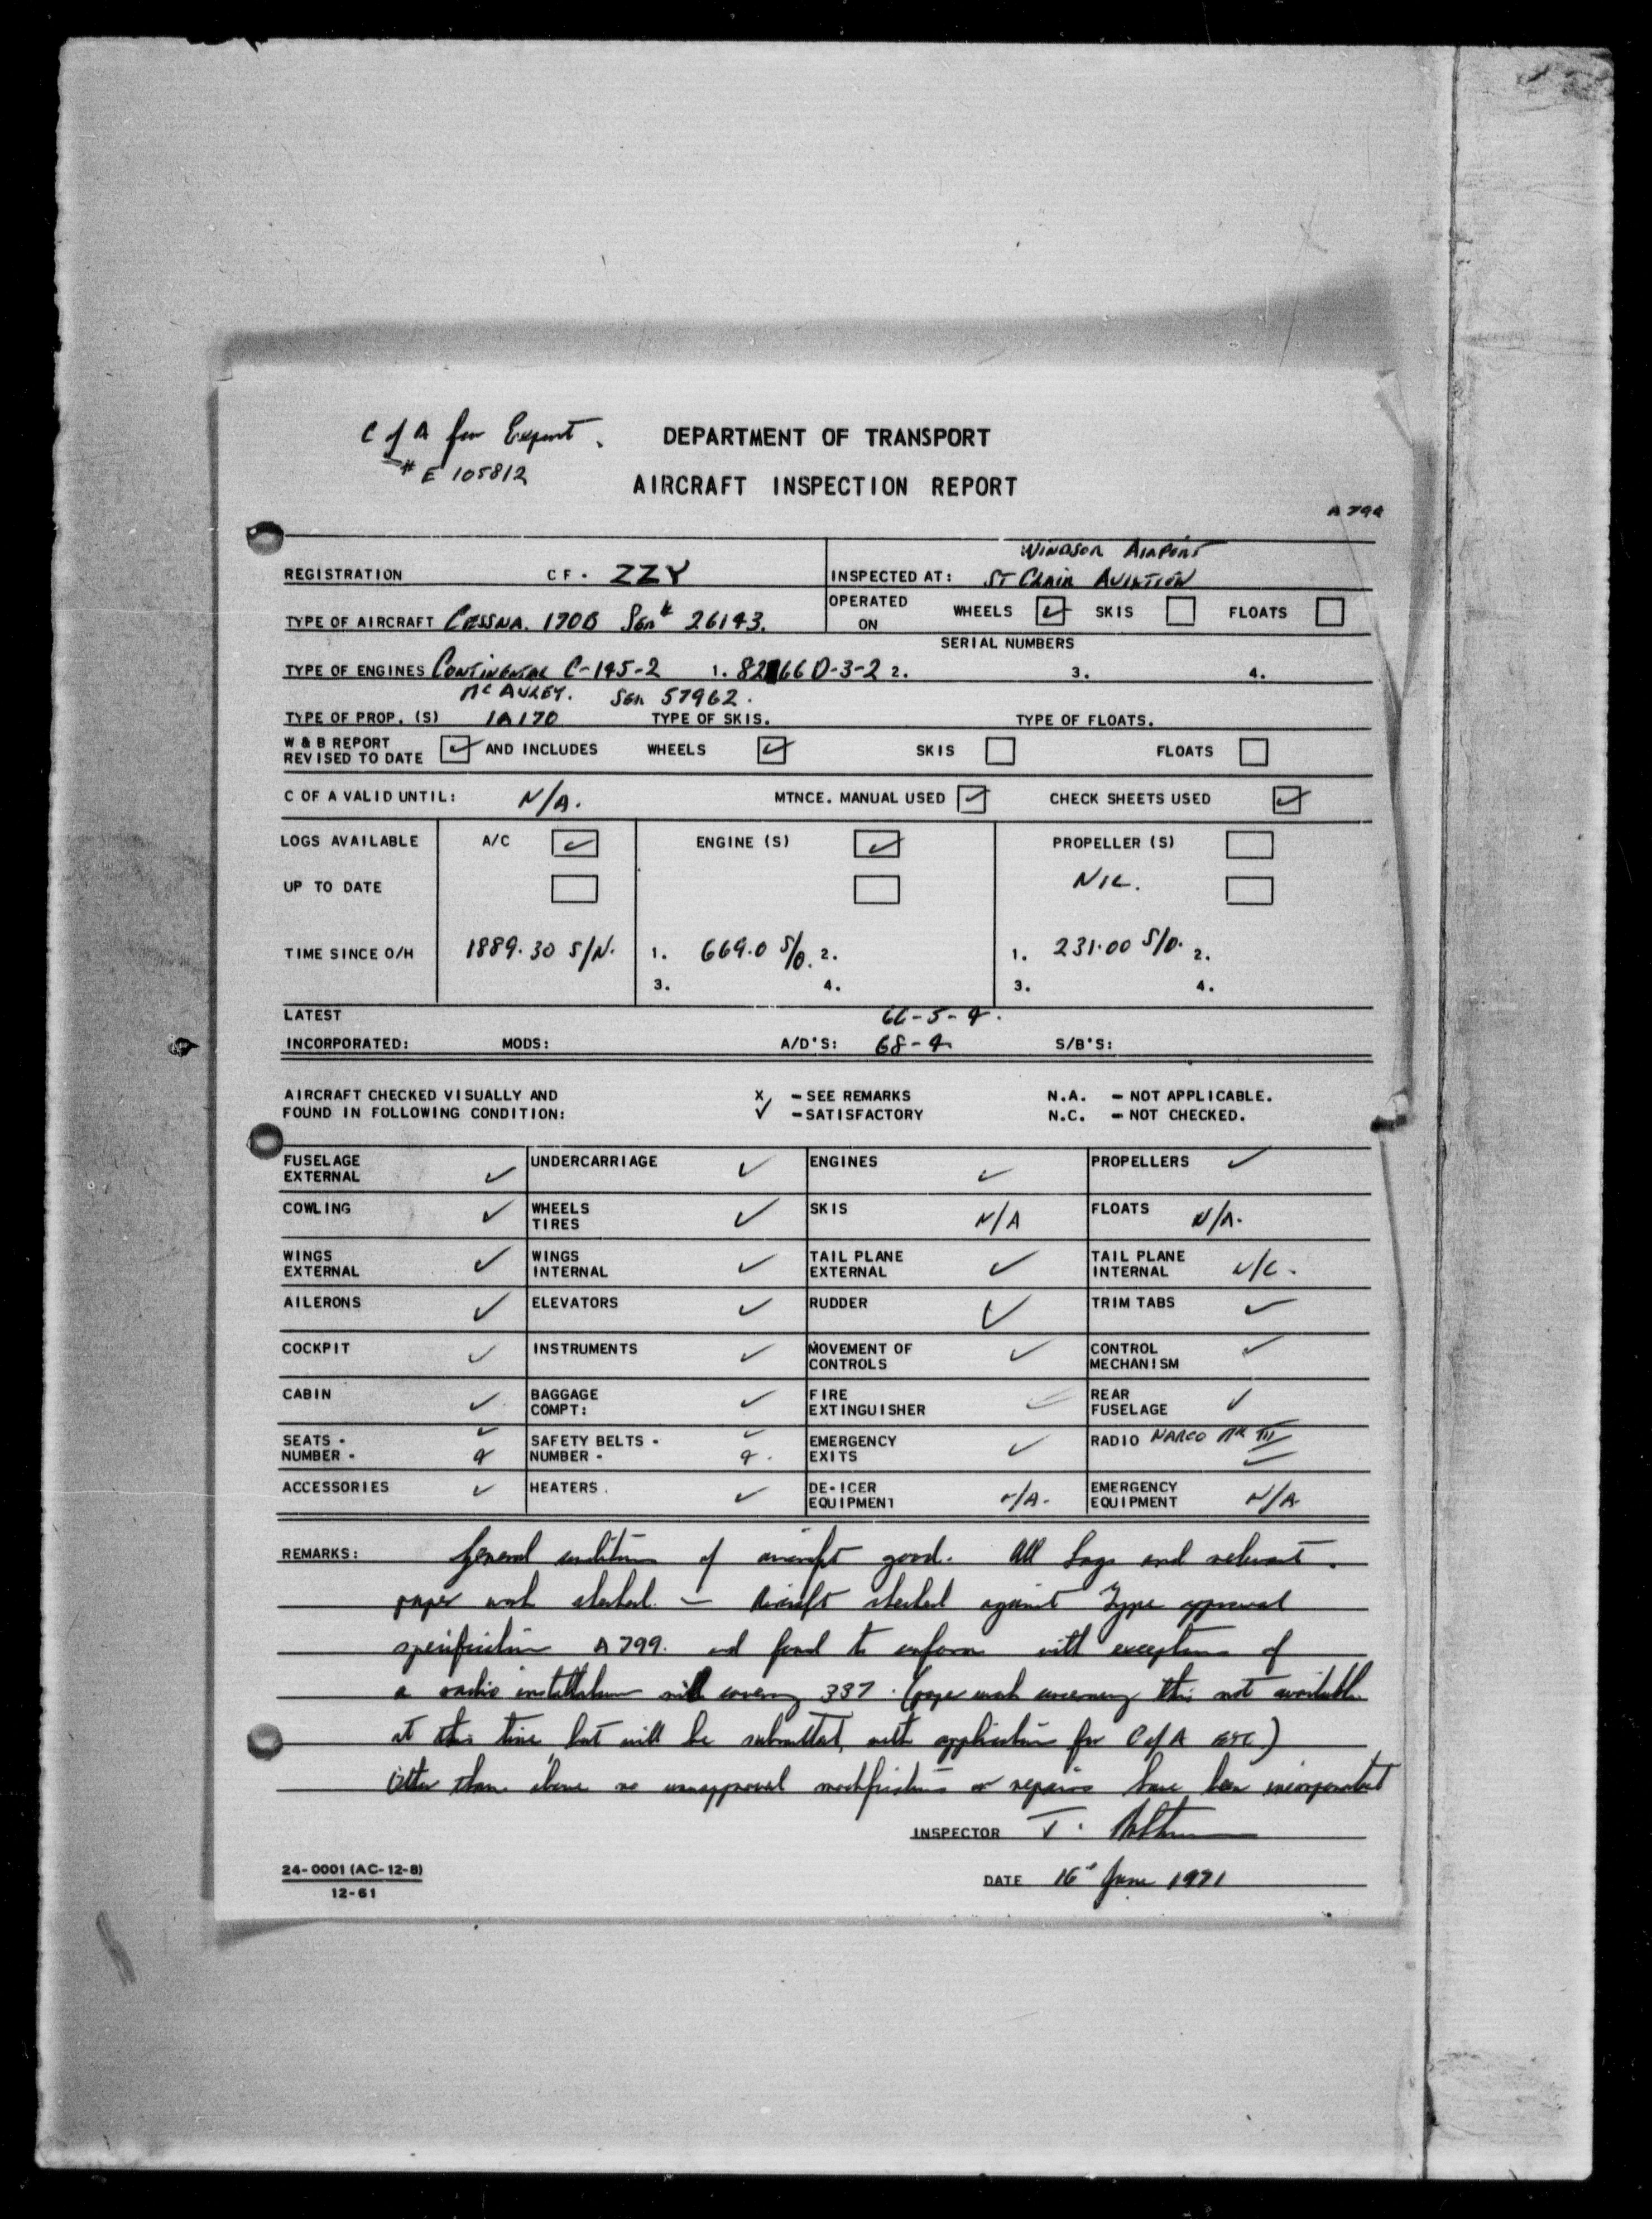 C of A for Export.
DEPARTMENT OF TRANSPORT
# E 105812
AIRCRAFT INSPECTION REPORT
A 799
WINDSOR AIRPORT
REGISTRATION CF. ZZY INSPECTED AT: ST CLAIR AVIATION
TYPE OF AIRCRAFT CESSNA. 170B Ser# 26143. OPERATED ON WHEELS ✓ SKIS FLOATS
SERIAL NUMBERS
TYPE OF ENGINES CONTINENTAL C-145-2 1. 82 66 D-3-2 2. 3. 4.
Mc AULEY. Ser 57962.
TYPE OF PROP. (S) 1A170 TYPE OF SKIS. TYPE OF FLOATS.
W & B REPORT REVISED TO DATE ✓ AND INCLUDES WHEELS ✓ SKIS FLOATS
C OF A VALID UNTIL: N/A. MTNCE. MANUAL USED ✓ CHECK SHEETS USED ✓
LOGS AVAILABLE A/C ✓ ENGINE (S) ✓ PROPELLER (S)
UP TO DATE NIL.
TIME SINCE O/H 1889.30 S/N. 1. 669.0 S/O. 2. 1. 231.00 S/O. 2.
3. 4. 3. 4.
LATEST 66-5-4.
INCORPORATED: MODS: A/D'S: 68-4 S/B'S:
AIRCRAFT CHECKED VISUALLY AND X - SEE REMARKS N.A. - NOT APPLICABLE.
FOUND IN FOLLOWING CONDITION: ✓ - SATISFACTORY N.C. - NOT CHECKED.
FUSELAGE EXTERNAL ✓ UNDERCARRIAGE ✓ ENGINES ✓ PROPELLERS ✓
COWLING ✓ WHEELS TIRES ✓ SKIS N/A FLOATS N/A.
WINGS EXTERNAL ✓ WINGS INTERNAL ✓ TAIL PLANE EXTERNAL ✓ TAIL PLANE INTERNAL N/C.
AILERONS ✓ ELEVATORS ✓ RUDDER ✓ TRIM TABS ✓
COCKPIT ✓ INSTRUMENTS ✓ MOVEMENT OF CONTROLS ✓ CONTROL MECHANISM ✓
CABIN ✓ BAGGAGE COMPT: ✓ FIRE EXTINGUISHER ✓ REAR FUSELAGE ✓
SEATS - NUMBER - ✓ 4 SAFETY BELTS - NUMBER - ✓ 4. EMERGENCY EXITS ✓ RADIO NARCO MK III ✓
ACCESSORIES ✓ HEATERS. ✓ DE-ICER EQUIPMENT N/A. EMERGENCY EQUIPMENT N/A.
REMARKS: General condition of aircraft good. All Logs and relevant.
paper work checked. - Aircraft checked against Type approval
specification A 799. and found to conform with exception of
a radio installation covering 337. (paper work concerning this not available
at this time but will be submitted, with application for C of A etc)
Other than above no unapproved modifications or repairs have been incorporated
INSPECTOR J.
24-0001 (AC-12-8)
12-61
DATE 16 June 1971